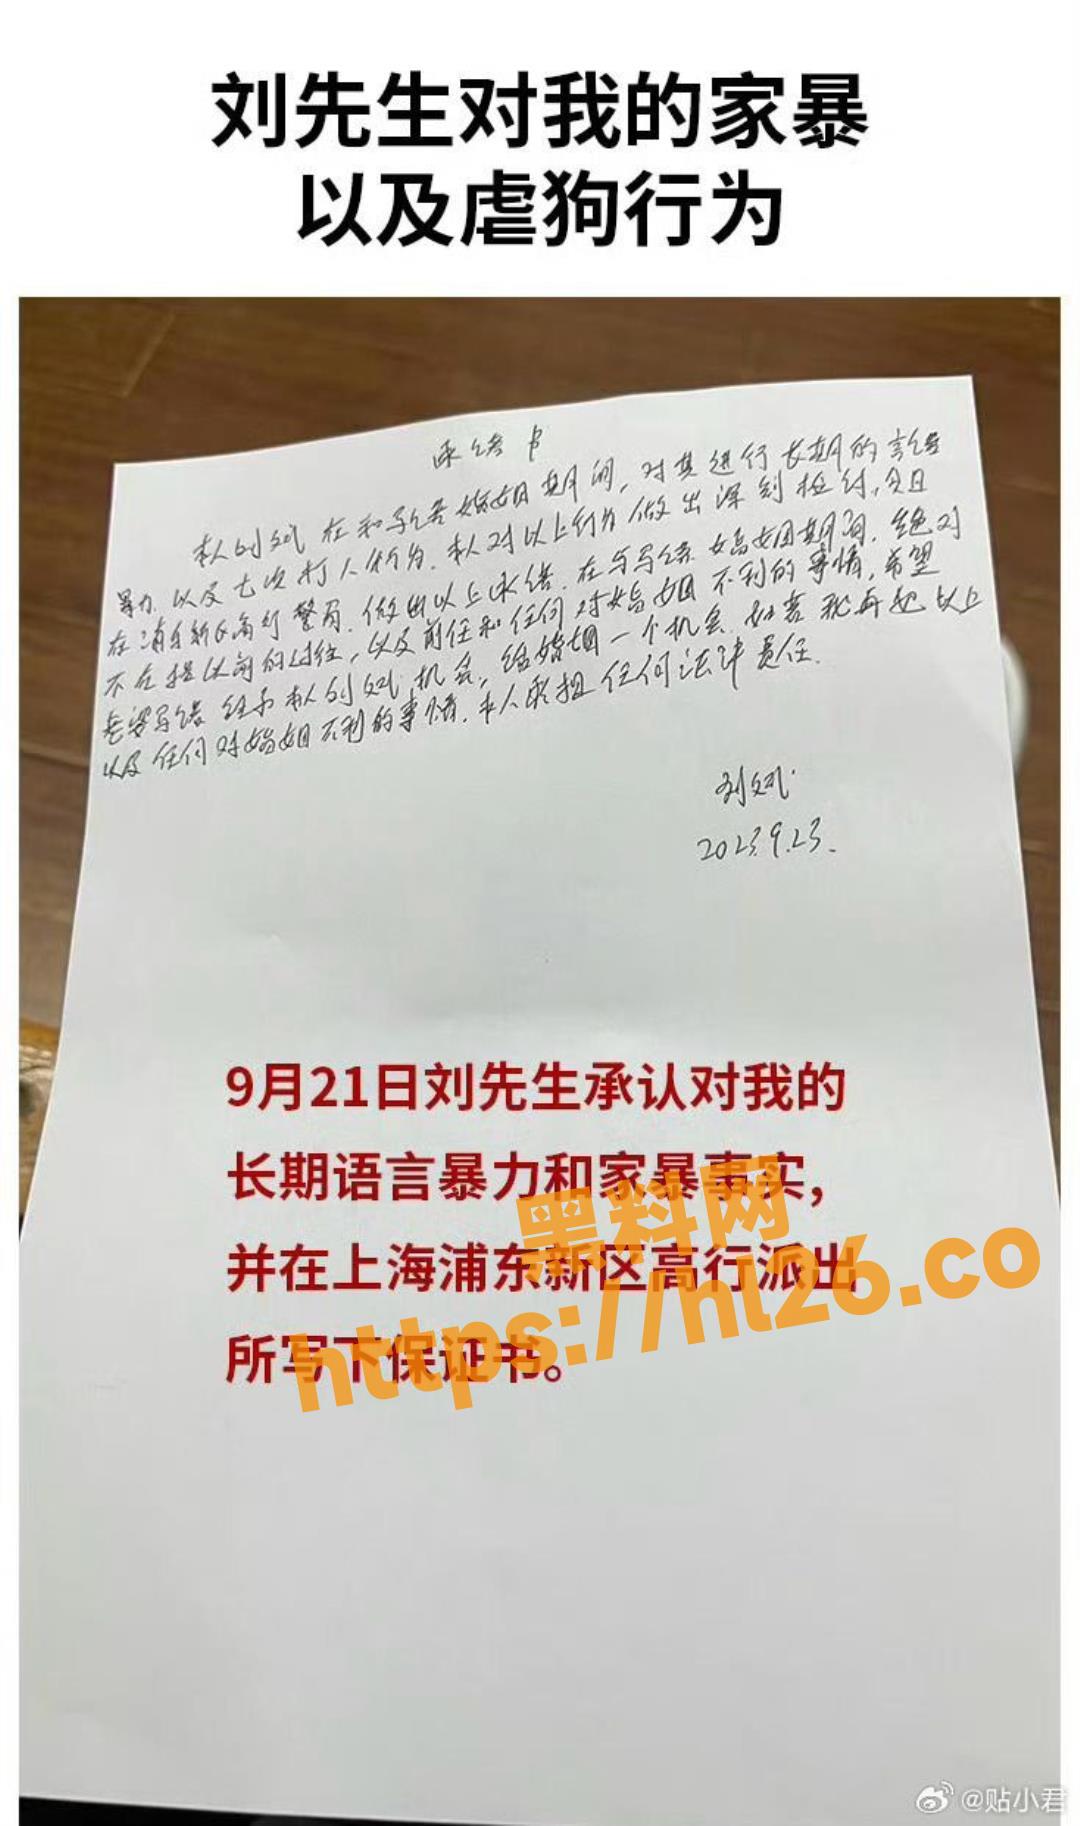 刘先生对我的家暴
以及虐狗行为
承诺书
本人刘斌在和 婚姻期间，对其进行长期的言语
暴力，以及七次打人行为，本人对以上行为做出深刻检讨，今日
在浦东新区高行警局，做出以上承诺，在与 婚姻期间，绝对
不在提以前的过往，以及前任和任何对婚姻不利的事情，希望
老婆 给予本人刘斌机会，给婚姻一个机会，如若我再犯以上
以及任何对婚姻不利的事情，本人承担任何法律责任．
刘斌
2023.9.23.
9月21日刘先生承认对我的
长期语言暴力和家暴事实，
并在上海浦东新区高行派出
所写下保证书。
黑料网
https://hl26.co
@贴小君